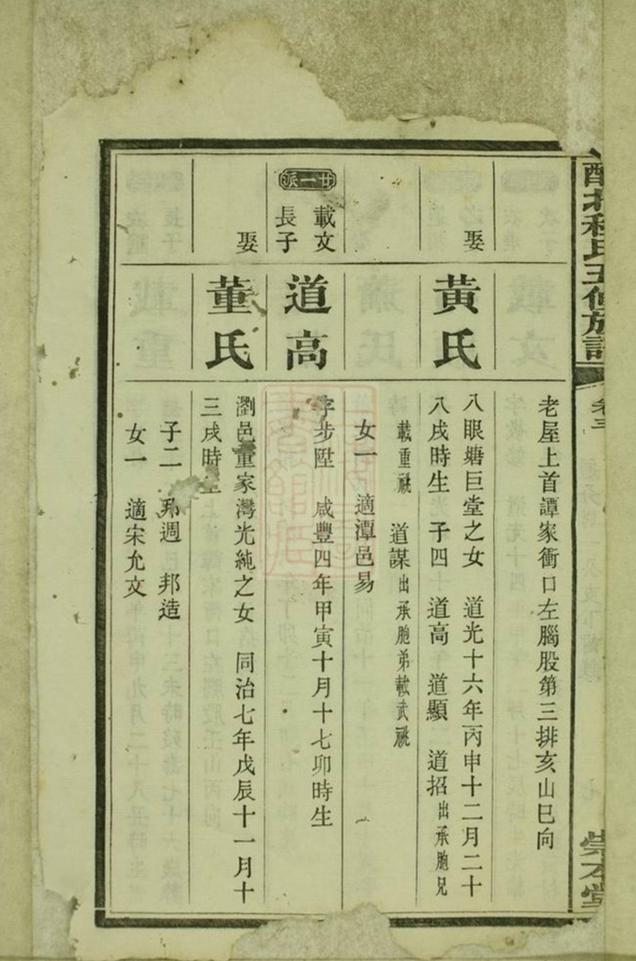 醴北程氏五修族譜
卷三
崇本堂
老屋上首譚家衝口左腦股第三排亥山巳向
娶
黃氏
八眼塘巨堂之女 道光十六年丙申十二月二十
八戌時生 子四 道高 道顯 道招出承胞兄
載重祧 道謀出承胞弟載武祧
女一 適潭邑易
廿一派
載文
長子
道高
字步陞 咸豐四年甲寅十月十七卯時生
娶
董氏
瀏邑董家灣光純之女 同治七年戊辰十一月十
三戌時生
子二 邦週 邦造
女一 適宋允文